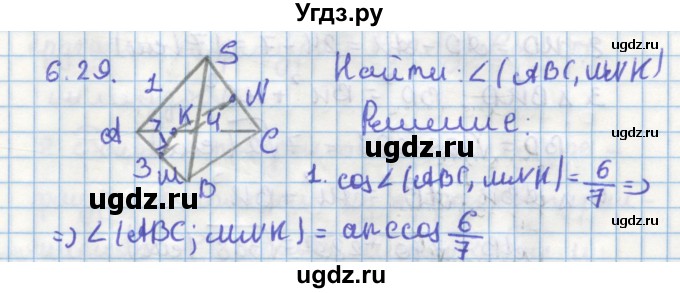 Угдз.ру
6.29.
S
1
N
Найти: ∠(ABC, MNK)
A
7
K
4
C
Решение:
3
M
B
1. cos∠(ABC, MNK) = 6/7 ⇒
⇒ ∠(ABC; MNK) = arccos 6/7
ugdz.ru
ugdz.ru
ugdz.ru
ugdz.ru
ugdz.ru
ugdz.ru
ugdz.ru
ugdz.ru